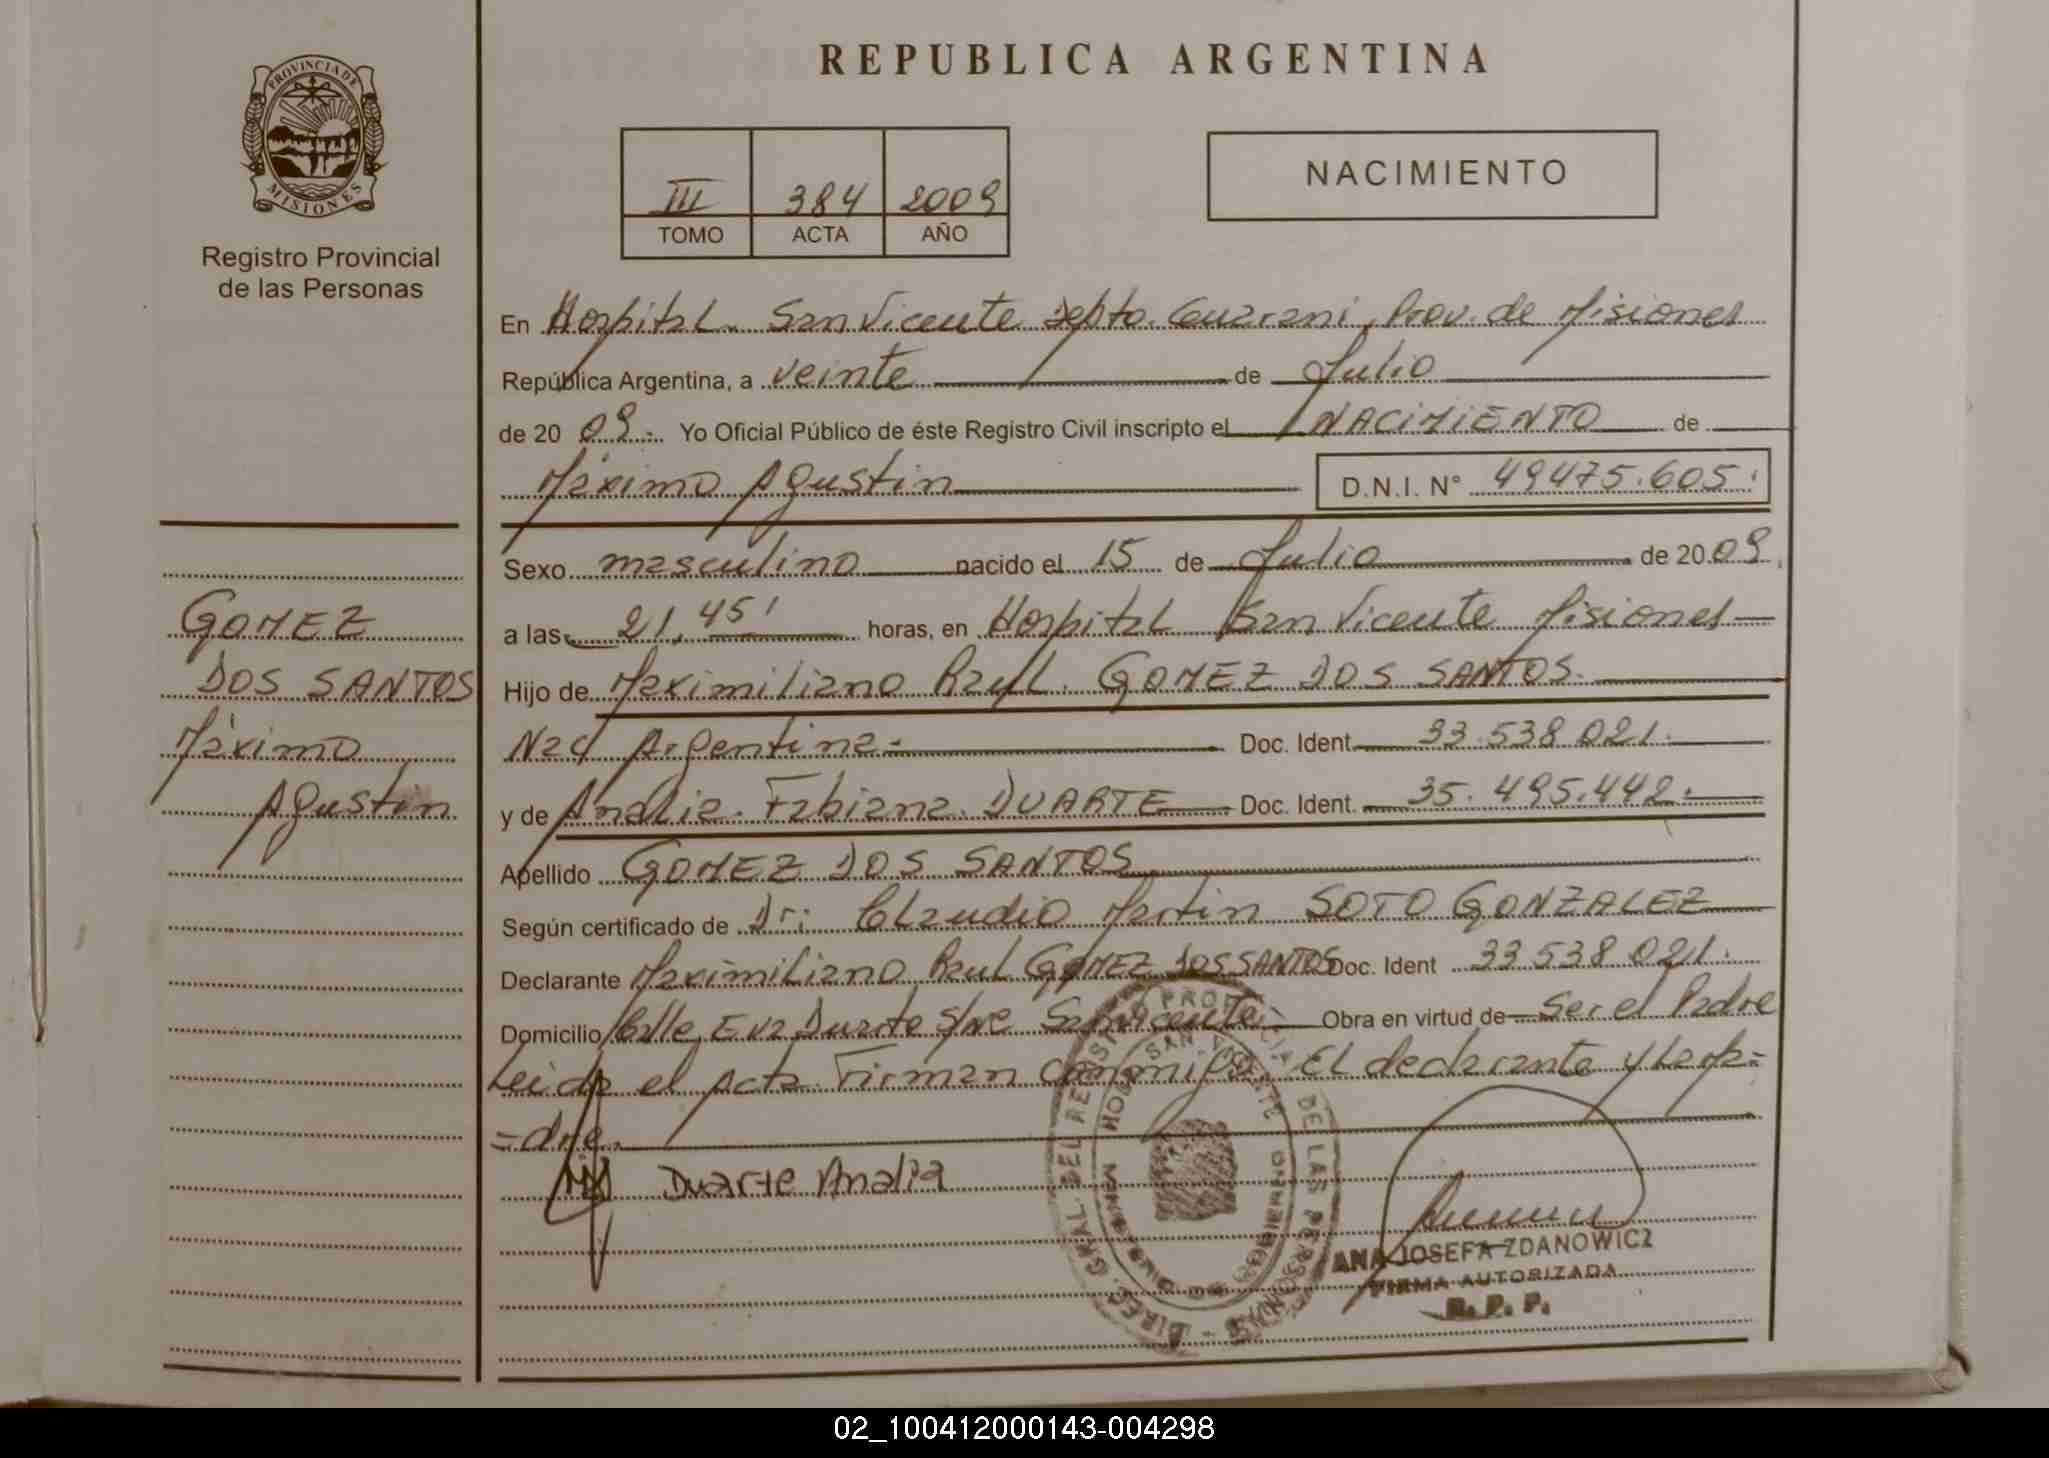 PROVINCIA DE
MISIONES
Registro Provincial
de las Personas
GOMEZ
DOS SANTOS
Máximo
Agustin
REPUBLICA ARGENTINA
III 384 2009
TOMO ACTA AÑO
NACIMIENTO
En Hospital. San Vicente Depto. Guarani, Prov. de Misiones
República Argentina, a veinte de Julio
de 20 09.- Yo Oficial Público de éste Registro Civil inscripto el NACIMIENTO de
Máximo Agustin D.N.I. N° 49475.605.
Sexo masculino nacido el 15 de Julio de 20 09
a las 21,45' horas, en Hospital San Vicente Misiones
Hijo de Maximiliano Raul. GOMEZ DOS SANTOS.
Nac Argentina.- Doc. Ident. 33.538.021.
y de Analia. Fabiana. DUARTE Doc. Ident. 35.495.442.
Apellido GOMEZ DOS SANTOS
Según certificado de Dr: Claudio Martin SOTO GONZALEZ
Declarante Maximiliano Raul GOMEZ DOS SANTOS Doc. Ident 33 538 021.
Domicilio Calle Eva Duarte S/Nre San Vicente.- Obra en virtud de Ser el Padre
Leida el Acta Firman conmigo. El declarante y la Ma=
=dre.
Duarte Analia
DIREC. GRAL. DEL REGISTRO PROVINCIAL DE LAS PERSONAS
SAN VICENTE
ANA JOSEFA ZDANOWICZ
FIRMA AUTORIZADA
R. P. P.
02_100412000143-004298